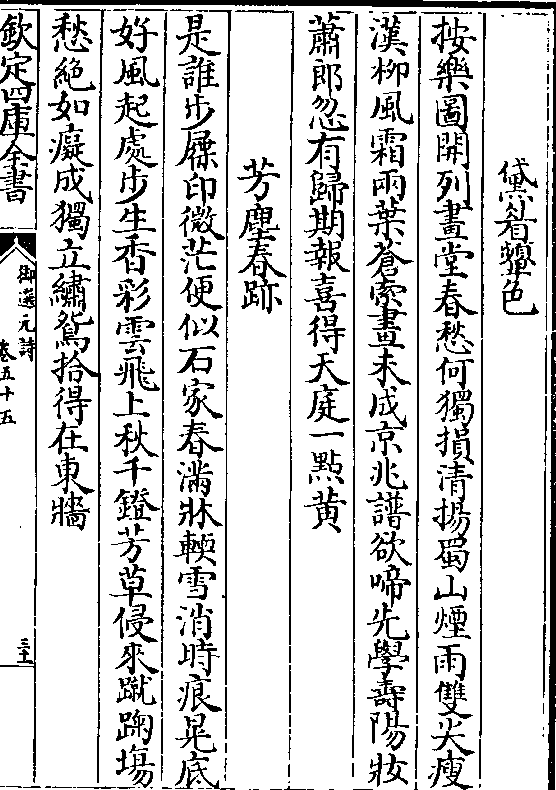 黛眉顰色
按樂圖開列畫堂春愁何獨損清揚蜀山煙雨雙尖瘦
漢柳風霜兩葉蒼索畫未成京兆譜欲啼先學壽陽妝
蕭郎忽有歸期報喜得天庭一點黄
芳塵春跡
是誰步屧印微茫便似石家春滿牀輭雪消時痕見底
好風起處步生香彩雲飛上秋千鐙芳草侵來蹴踘塲
愁絶如癡成獨立繡鴛拾得在東牆
欽定四庫全書
御選元詩
卷五十五
三十